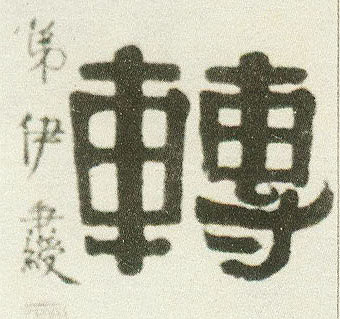 轉
弟伊秉綬